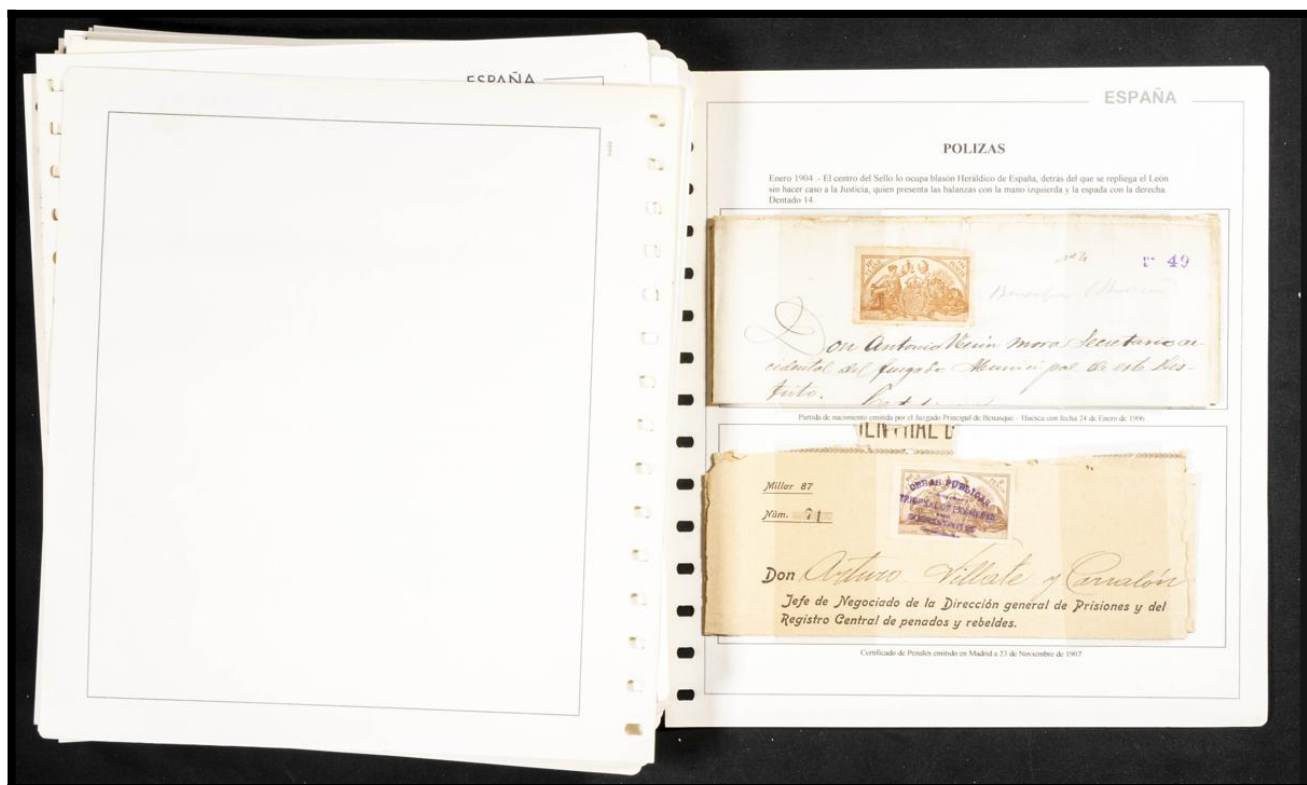 ESPAÑA
ESPAÑA
POLIZAS
Enero 1904 .- El centro del Sello lo ocupa blasón Heráldico de España, detrás del que se repliega el León
sin hacer caso a la Justicia, quien presenta las balanzas con la mano izquierda y la espada con la derecha
Dentado 14.
49
Don Antonio mora Secretario ac-
cidental del Juzgado Municipal de este Dis-
trito.
Partida de nacimiento emitida por el Juzgado Principal de Benasque - Huesca con fecha 24 de Enero de 1906
Millar 87
Núm. 71
OBRAS PUBLICAS
Don Arturo Villate y Carralón
Jefe de Negociado de la Dirección general de Prisiones y del
Registro Central de penados y rebeldes.
Certificado de Penales emitido en Madrid a 23 de Noviembre de 1907